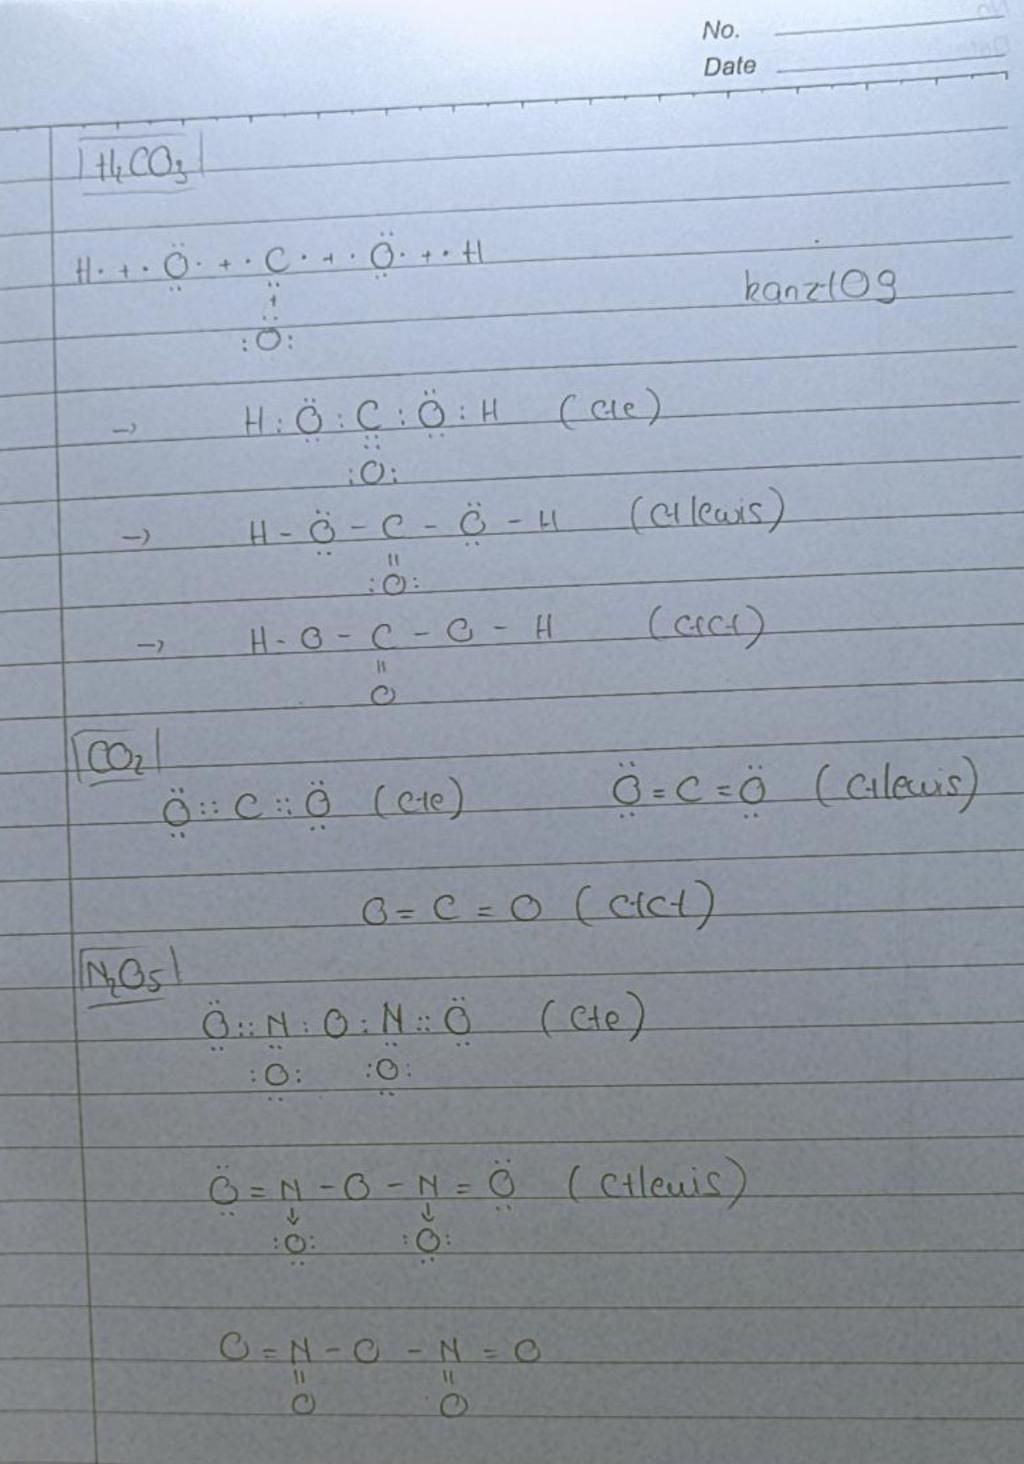 No.
Date
H₂CO₃
H· + ·Ö̤· + ·C̤· + ·Ö̤· + ·H
+
:Ö:
kanz109
→ H:Ö̤:C̤:Ö̤:H (cte)
:Ö:
→ H - Ö̤ - C - Ö̤ - H (ctlewis)
॥
:O:
→ H - O - C - O - H (ctct)
॥
O
CO₂
Ö̤::C::Ö̤ (cte) Ö̤=C=Ö̤ (ctlewis)
O = C = O (ctct)
N₂O₅
Ö̤::N̤:O:N̤::Ö̤ (cte)
:O̤: :O̤:
Ö̤ = N - O - N = Ö̤ (ctlewis)
↓ ↓
:O̤: :O̤:
O = N - O - N = O
॥ ॥
O O